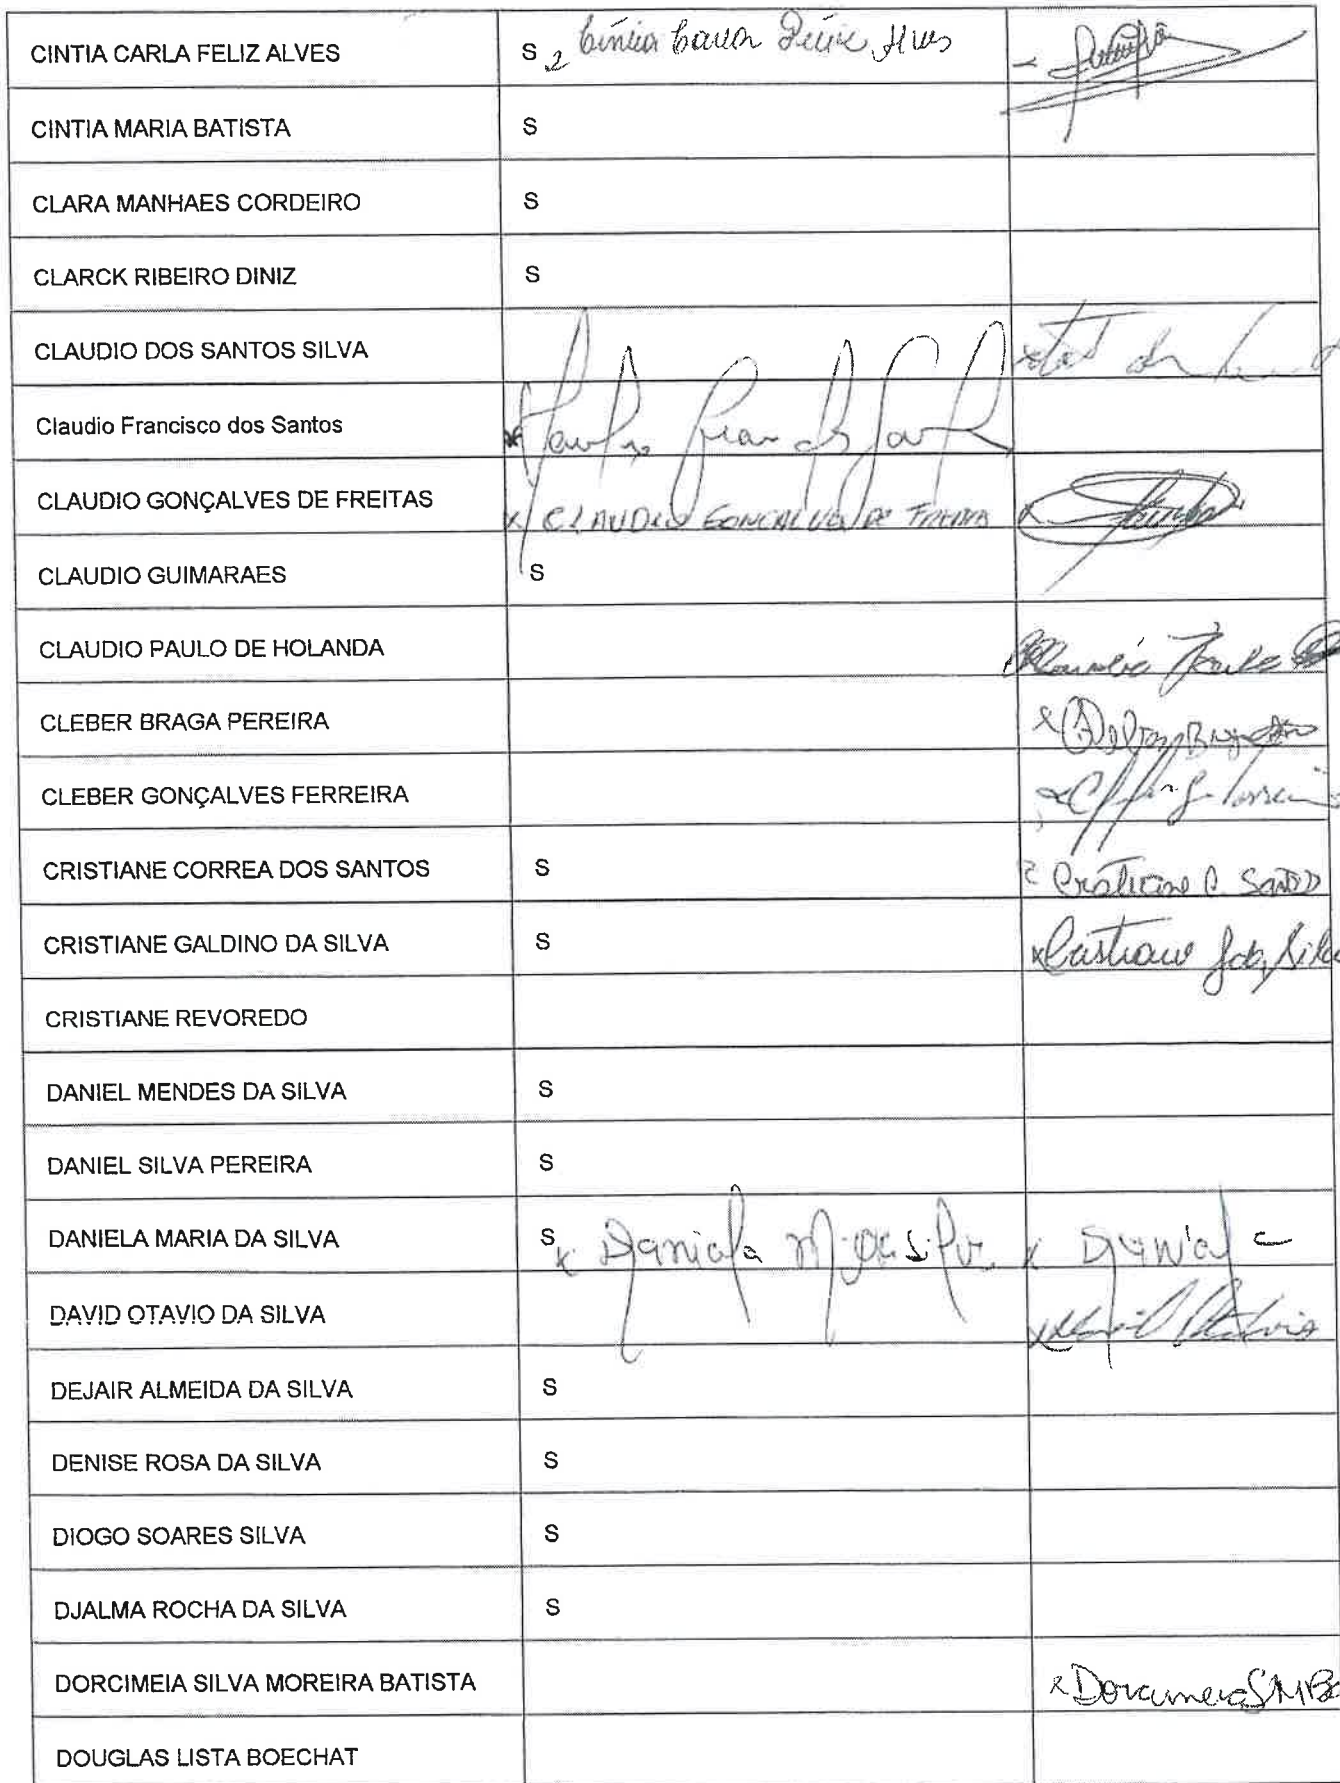 CINTIA CARLA FELIZ ALVES S
CINTIA MARIA BATISTA S
CLARA MANHAES CORDEIRO S
CLARCK RIBEIRO DINIZ S
CLAUDIO DOS SANTOS SILVA
Claudio Francisco dos Santos
CLAUDIO GONÇALVES DE FREITAS x CLAUDIO GONCALVES DE
CLAUDIO GUIMARAES S
CLAUDIO PAULO DE HOLANDA
CLEBER BRAGA PEREIRA
CLEBER GONÇALVES FERREIRA
CRISTIANE CORREA DOS SANTOS S Cristiane C. Santos
CRISTIANE GALDINO DA SILVA S x Cristiane G da Silva
CRISTIANE REVOREDO
DANIEL MENDES DA SILVA S
DANIEL SILVA PEREIRA S
DANIELA MARIA DA SILVA S x Daniela M. da Silva x Daniela
DAVID OTAVIO DA SILVA x David Otavio
DEJAIR ALMEIDA DA SILVA S
DENISE ROSA DA SILVA S
DIOGO SOARES SILVA S
DJALMA ROCHA DA SILVA S
DORCIMEIA SILVA MOREIRA BATISTA
DOUGLAS LISTA BOECHAT